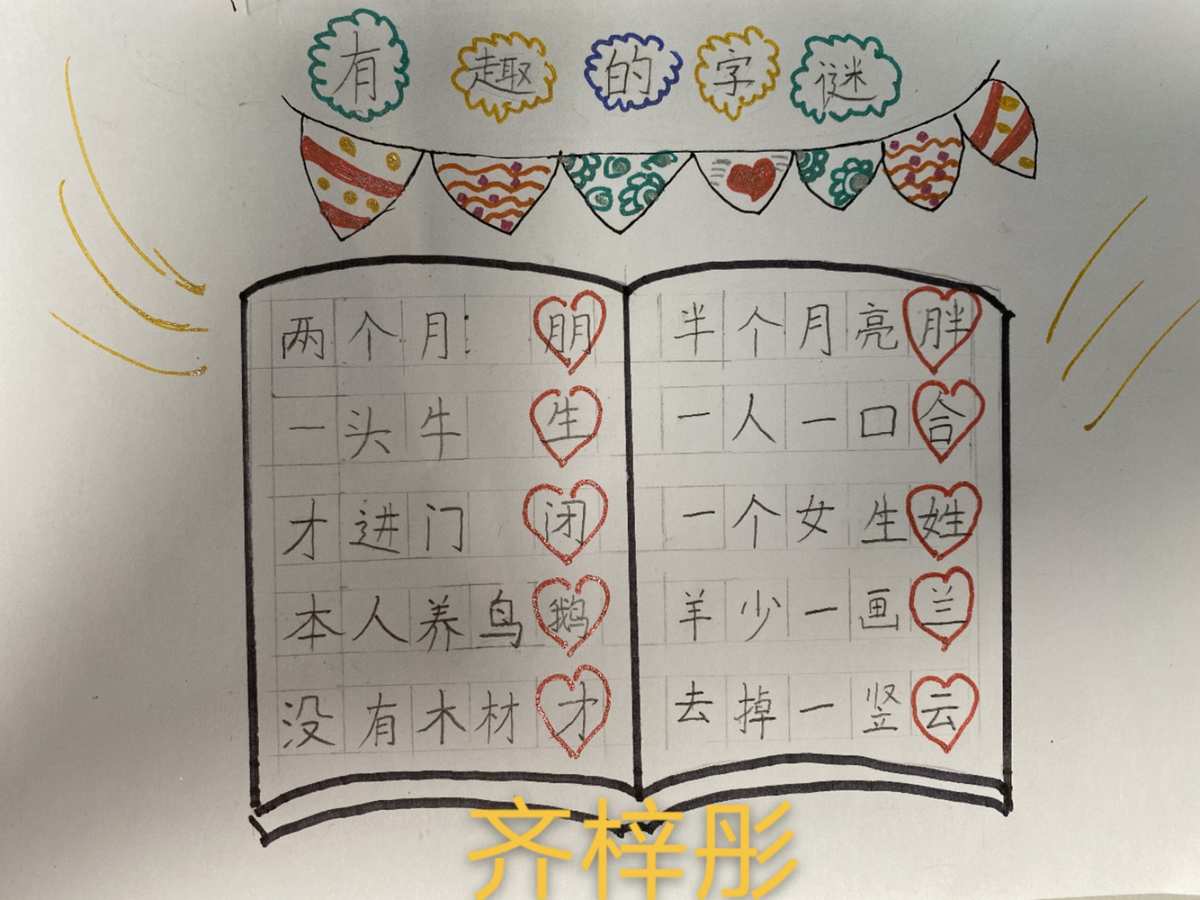 有趣的字谜
两个月: 朋
一头牛 生
才进门 闭
本人养鸟 鹅
没有木材 才
半个月亮 胖
一人一口 合
一个女生 姓
羊少一画 兰
去掉一竖 云
齐梓彤